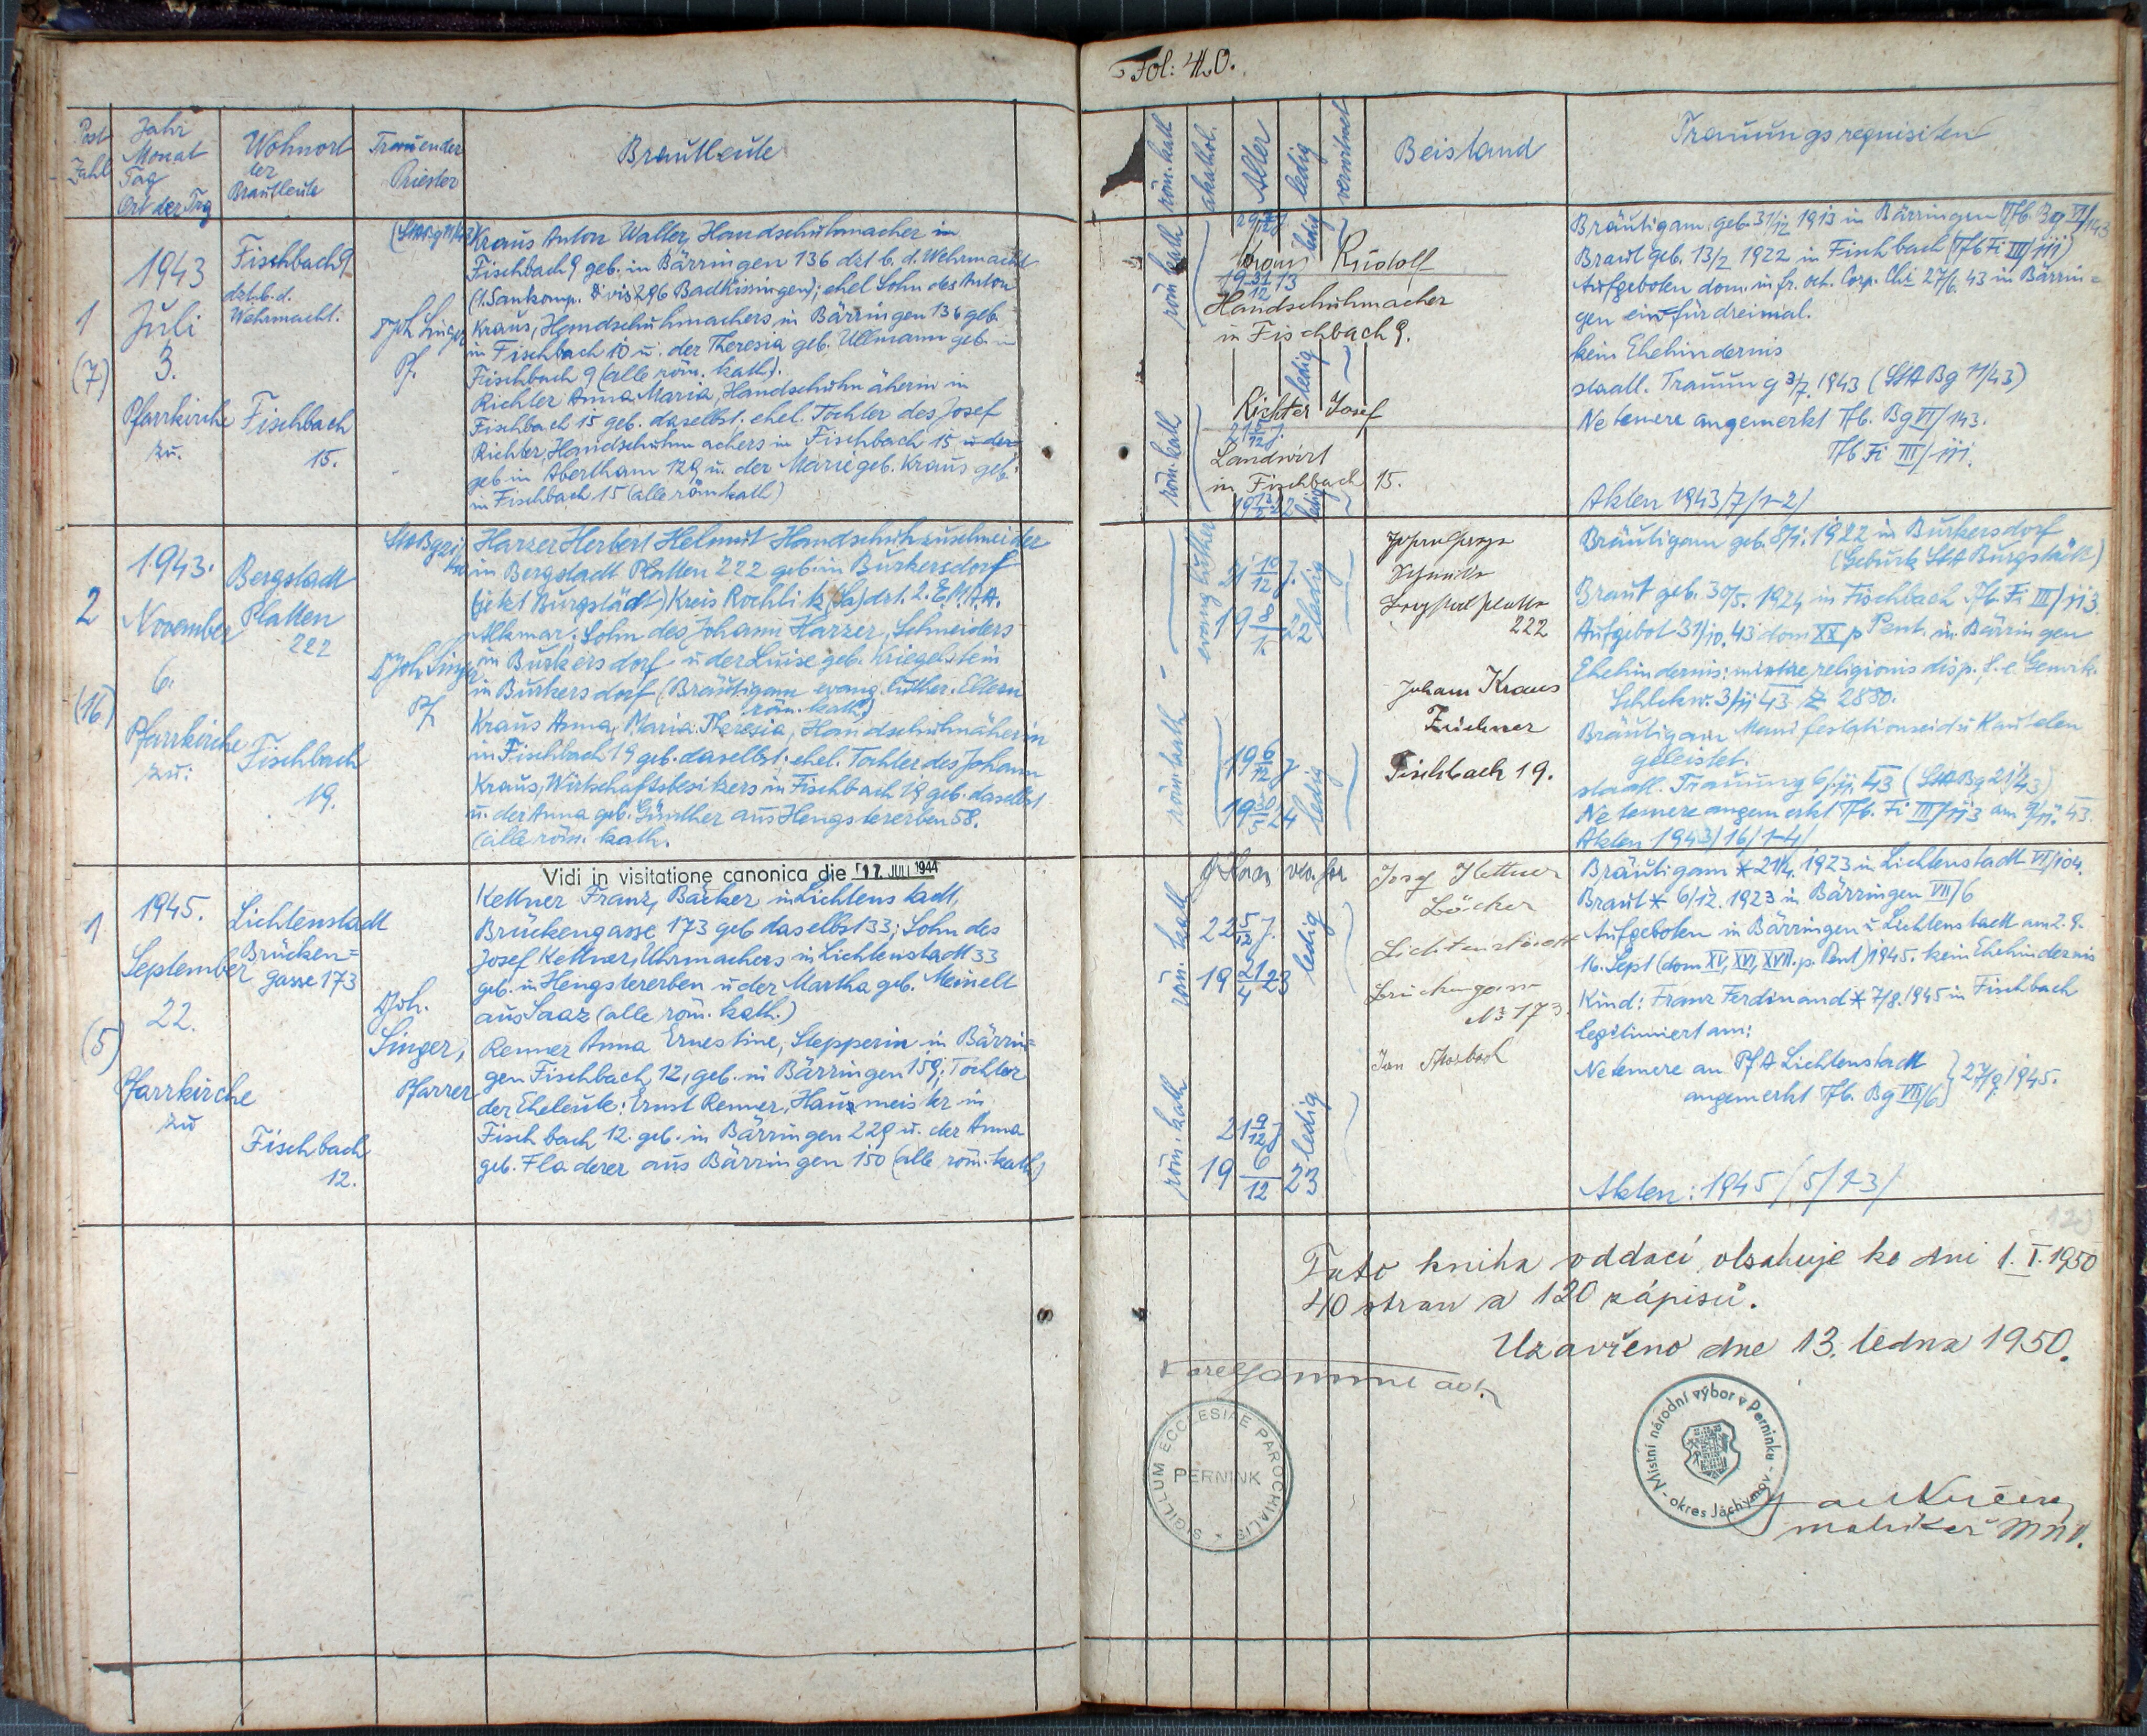 Fol: 40.
Post Zahl
Jahr Monat Tag Ort der Trg
Wohnort der Brautleute
Trauender Priester
Brautleute
röm. kath
akathol.
Alter
ledig
verwitwet
Beistand
Trauungsrequisiten
1
(7)
1943
Juli
3.
Pfarrkirche
zu.
Fischbach 9
dzt. b. d.
Wehrmacht.
Fischbach
15.
Joh. Singer
Pf.
Kraus Anton Walter, Handschuhmacher in
Fischbach 9 geb. in Bärringen 136 dzt b. d. Wehrmacht
(1. Sankomp. Divis 296 Bad Kissingen); ehel Sohn des Anton
Kraus, Handschuhmachers in Bärringen 136 geb.
in Fischbach 10 u. der Theresia geb. Ullmann geb. in
Fischbach 9 (alle röm. kath).
Richter Anna Maria, Handschuhnäherin in
Fischbach 15 geb. daselbst. ehel. Tochter des Josef
Richter, Handschuhmachers in Fischbach 15 u der
geb in Abertham 129 u. der Marie geb. Kraus geb.
in Fischbach 15 (alle röm kath)
röm kath
ledig
Kraus Rudolf
19 31/12 13
Handschuhmacher
in Fischbach 9.
röm. kath
ledig
Richter Josef
21 5/12 J.
Landwirt
in Fischbach 15.
19 13/2 22
ledig
Bräutigam geb. 31/12 1913 in Bärringen Tfb. Bg VI/143
Braut geb. 13/2 1922 in Fischbach (Tfb Fi III/111)
Aufgeboten dom. infr. oct. Corp. Chi 27/6. 43 in Bärrin=
gen ein für dreimal.
kein Ehehindernis
staatl. Trauung 3/7. 1943 (StA Bg 11/43)
Ne temere angemerkt Tfb. Bg VI/143.
Tfb Fi III/111.
Akten 1943/7/1-2/
2
(16)
1943.
November
6.
Pfarrkirche
zu:
Bergstadt
Platten
222
Fischbach
19.
Joh. Singer
Pf.
Harzer Herbert Helmut Handschuhzuschneider
in Bergstadt Platten 222 geb in Burkersdorf
(jetzt Burgstädt) Kreis Rochlitz (Sa) dzt. 2. E.M.A.A.
Alkmar. Sohn des Johann Harzer, Schneiders
in Burkersdorf u der Luise geb. Kriegelstein
in Burkersdorf (Bräutigam evang. luther. Eltern
röm. kath.)
Kraus Anna, Maria Theresia, Handschuhnäherin
in Fischbach 19 geb. daselbst. ehel. Tochter des Johann
Kraus, Wirtschaftsbesitzers in Fischbach 19 geb. daselbst
u. der Anna geb. Günther aus Hengstererben 58.
(alle röm. kath.
evang luther
21 10/12 J.
19 8/1. 22
ledig
röm kath
19 6/12 J
19 30/5 24
ledig
222
Johann Kraus
Fischbach 19.
Bräutigam geb. 8/1. 1922 in Burkersdorf
(Geburk StA Burgstädt)
Braut geb. 30/5. 1924 in Fischbach Tfb. Fi III/113.
Aufgebot 31/10. 43 dom XX p Pent. in Bärringen
Ehehindernis: mixtae religionis disp. f. e. Genvik.
Schlckw. 3/11 43 Z 2880.
Bräutigam Manifestationseid u Kautelen
geleistet.
staatl. Trauung 6/11. 43 (StA Bg 21/43)
Ne temere angemerkt Tfb. Fi III/113 am 9/11. 43.
Akten 1943/16/1-4/
Vidi in visitatione canonica die 17. JULI 1944
1
(5)
1945.
September
22.
Pfarrkirche
zu
Lichtenstadt
Brücken=
gasse 173
Fischbach
12.
Joh.
Singer,
Pfarrer
Kettner Franz, Bäcker in Lichtenstadt,
Brückengasse 173 geb daselbst 33; Sohn des
Josef Kettner, Uhrmachers in Lichtenstadt 33
geb. in Hengstererben u der Martha geb. Meinelt
aus Saaz (alle röm. kath.)
Renner Anna Ernestine, Stepperin in Bärrin=
gen Fischbach 12, geb. in Bärringen 159; Tochter
der Eheleute: Ernst Renner, Hausmeister in
Fischbach 12. geb. in Bärringen 229 u. der Anna
geb. Fladerer aus Bärringen 150 (alle röm. kath)
röm. kath
22 5/12 J.
19 21/4 23
ledig
röm. kath
21 9/12 J
19 6/12 23
ledig
Josef Kettner
Bäcker
Lichtenstadt
Brückengasse
No 173.
Bräutigam * 21/4. 1923 in Lichtenstadt VI/104.
Braut * 6/12. 1923 in Bärringen VIII/6
Aufgeboten in Bärringen u Lichtenstadt am 2. 9.
16. Sept (dom XV, XVI, XVII. p. Pent) 1945. kein Ehehindernis
Kind: Franz Ferdinand * 7/8. 1945 in Fischbach
legitimiert am:
Ne temere an PfA Lichtenstadt
angemerkt Tfb. Bg VIII/6 } 27/9. 1945.
Akten: 1945/5/1-3/
120
Tato kniha oddací obsahuje ko dni 1. I. 1950
40 stran a 120 zápisů.
Uzavřeno dne 13. ledna 1950.
SIGILLUM ECCLESIAE PAROCHIALIS
PERNINK
Místní národní výbor v Perninku
- okres Jáchymov -
matrikář MNV.